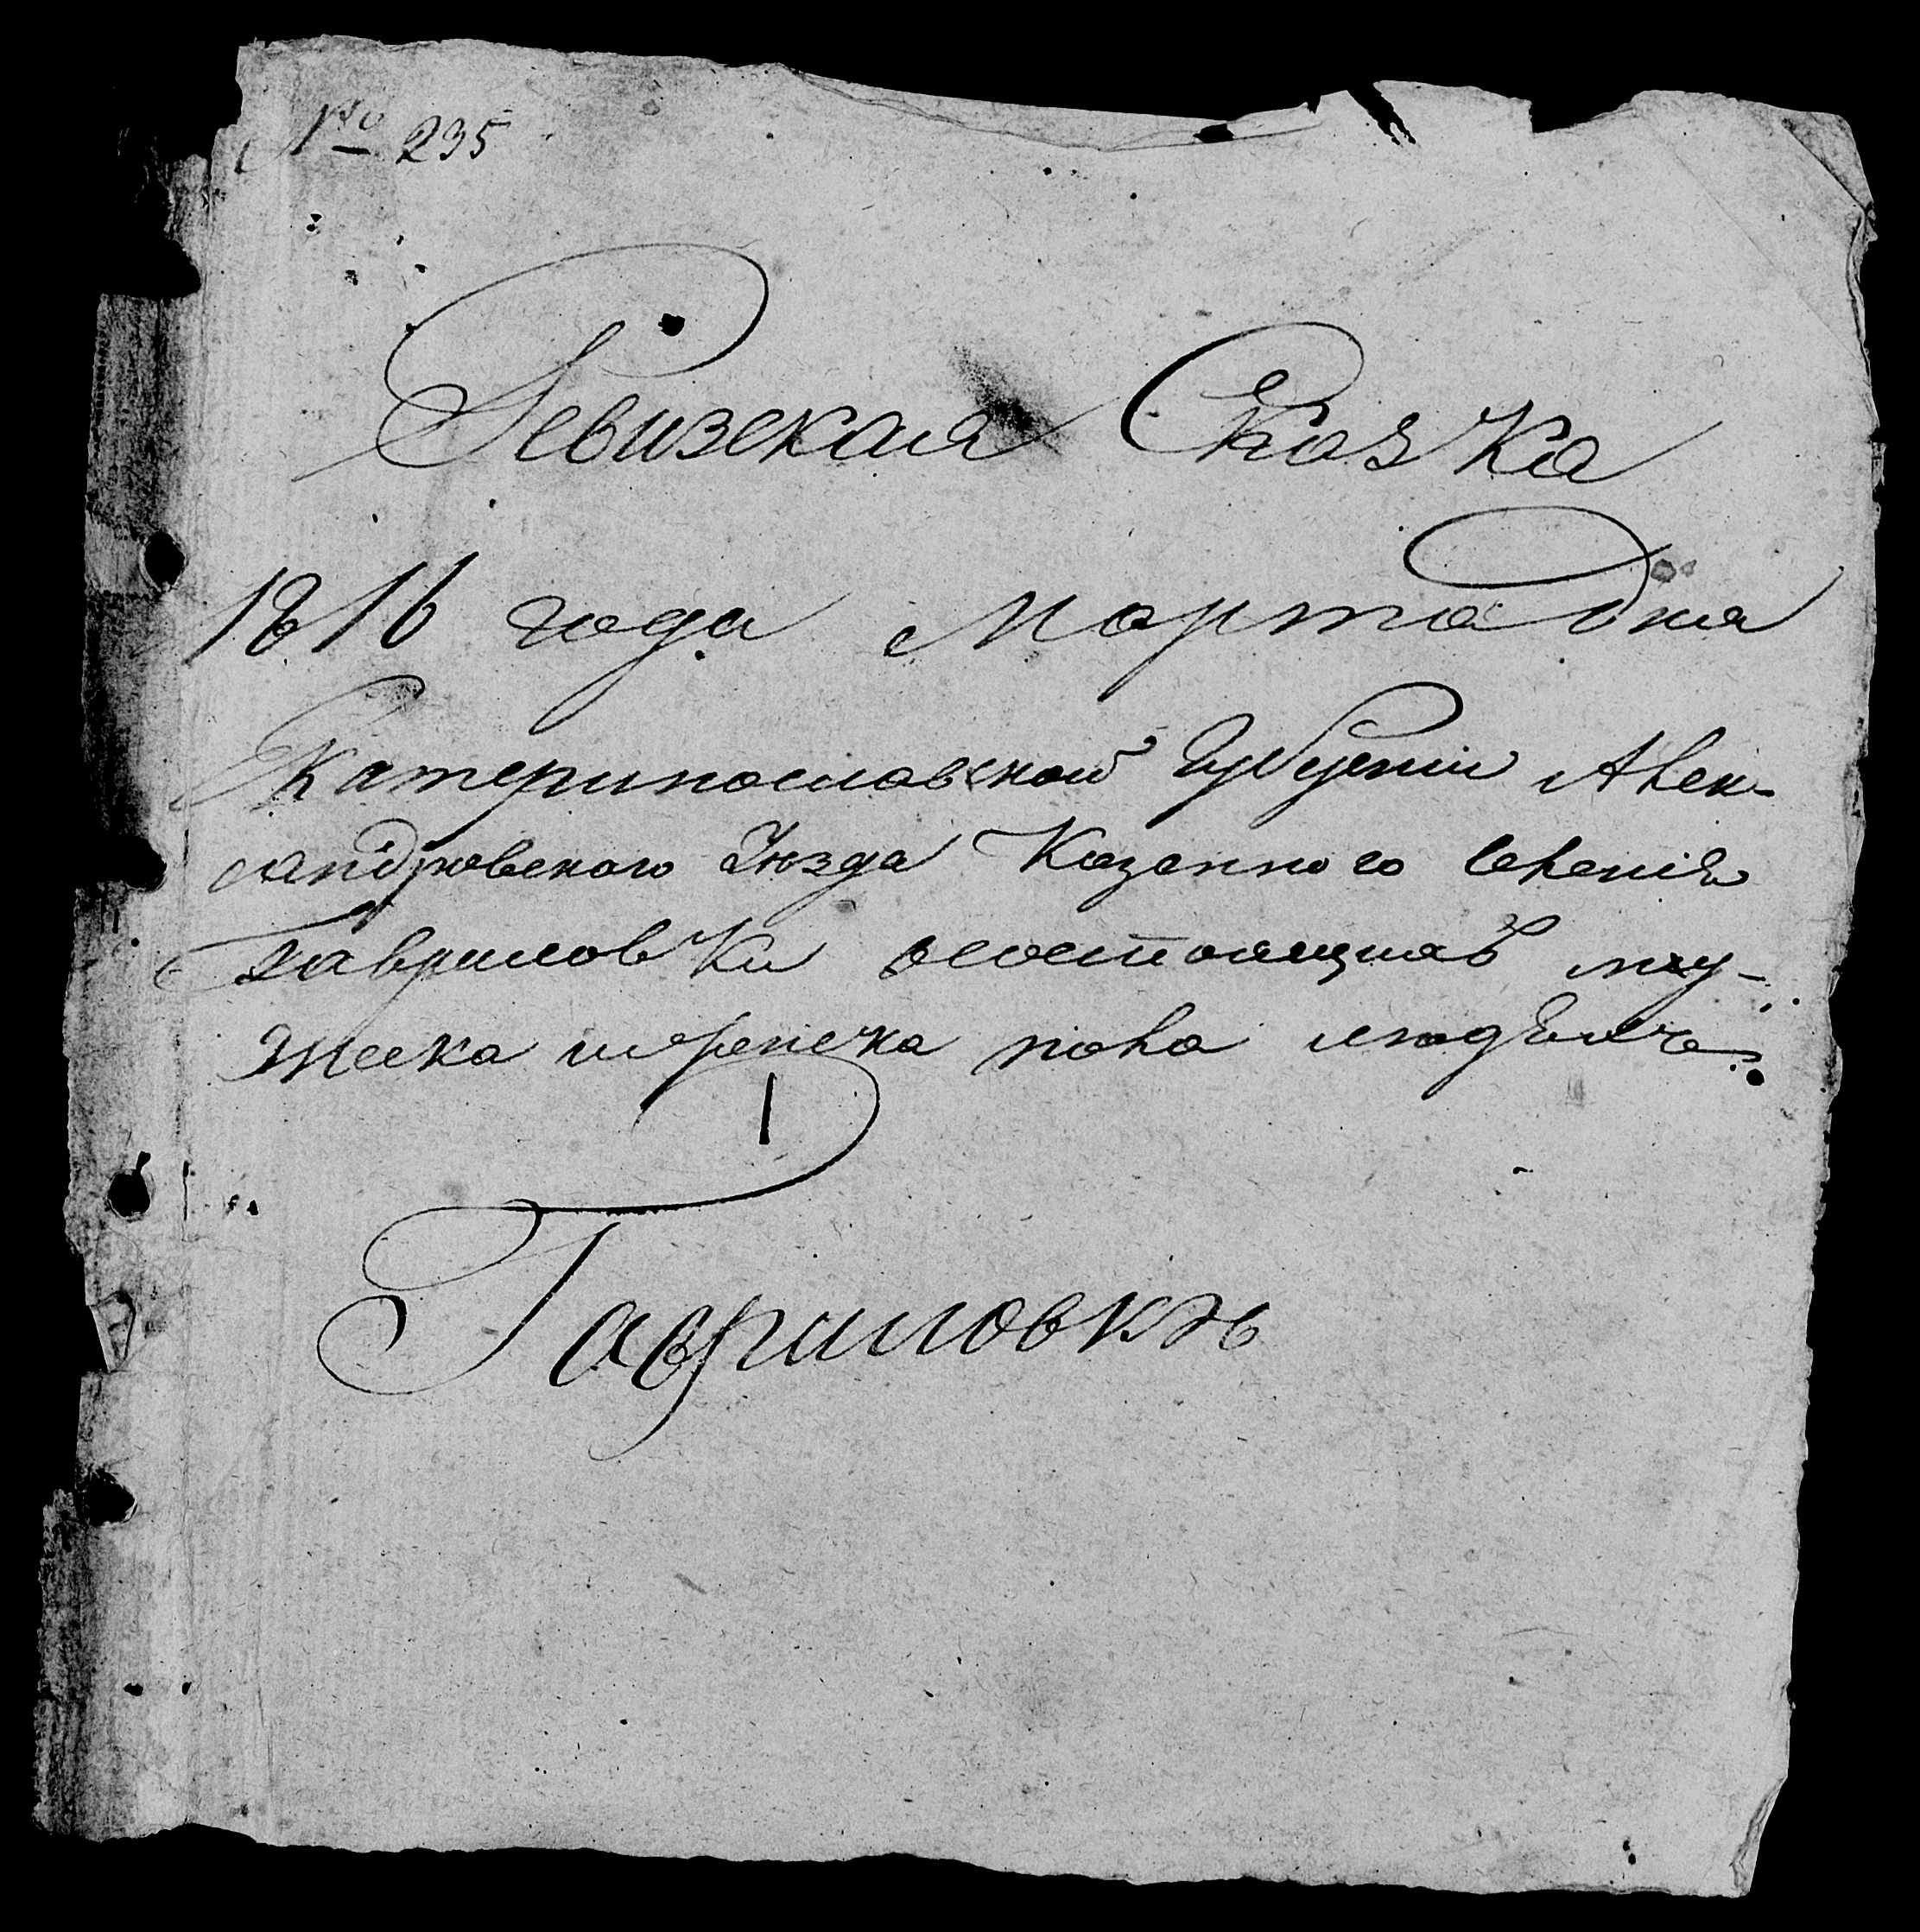 № 235
Ревизская Сказка
1816 года марта дня
Екатеринославской Губернiи Алек-
сандровского Уѣзда Казенного селенiя
Гавриловки осостоящихъ му-
жеска и женска пола людѣхъ
1
Гавриловкѣ